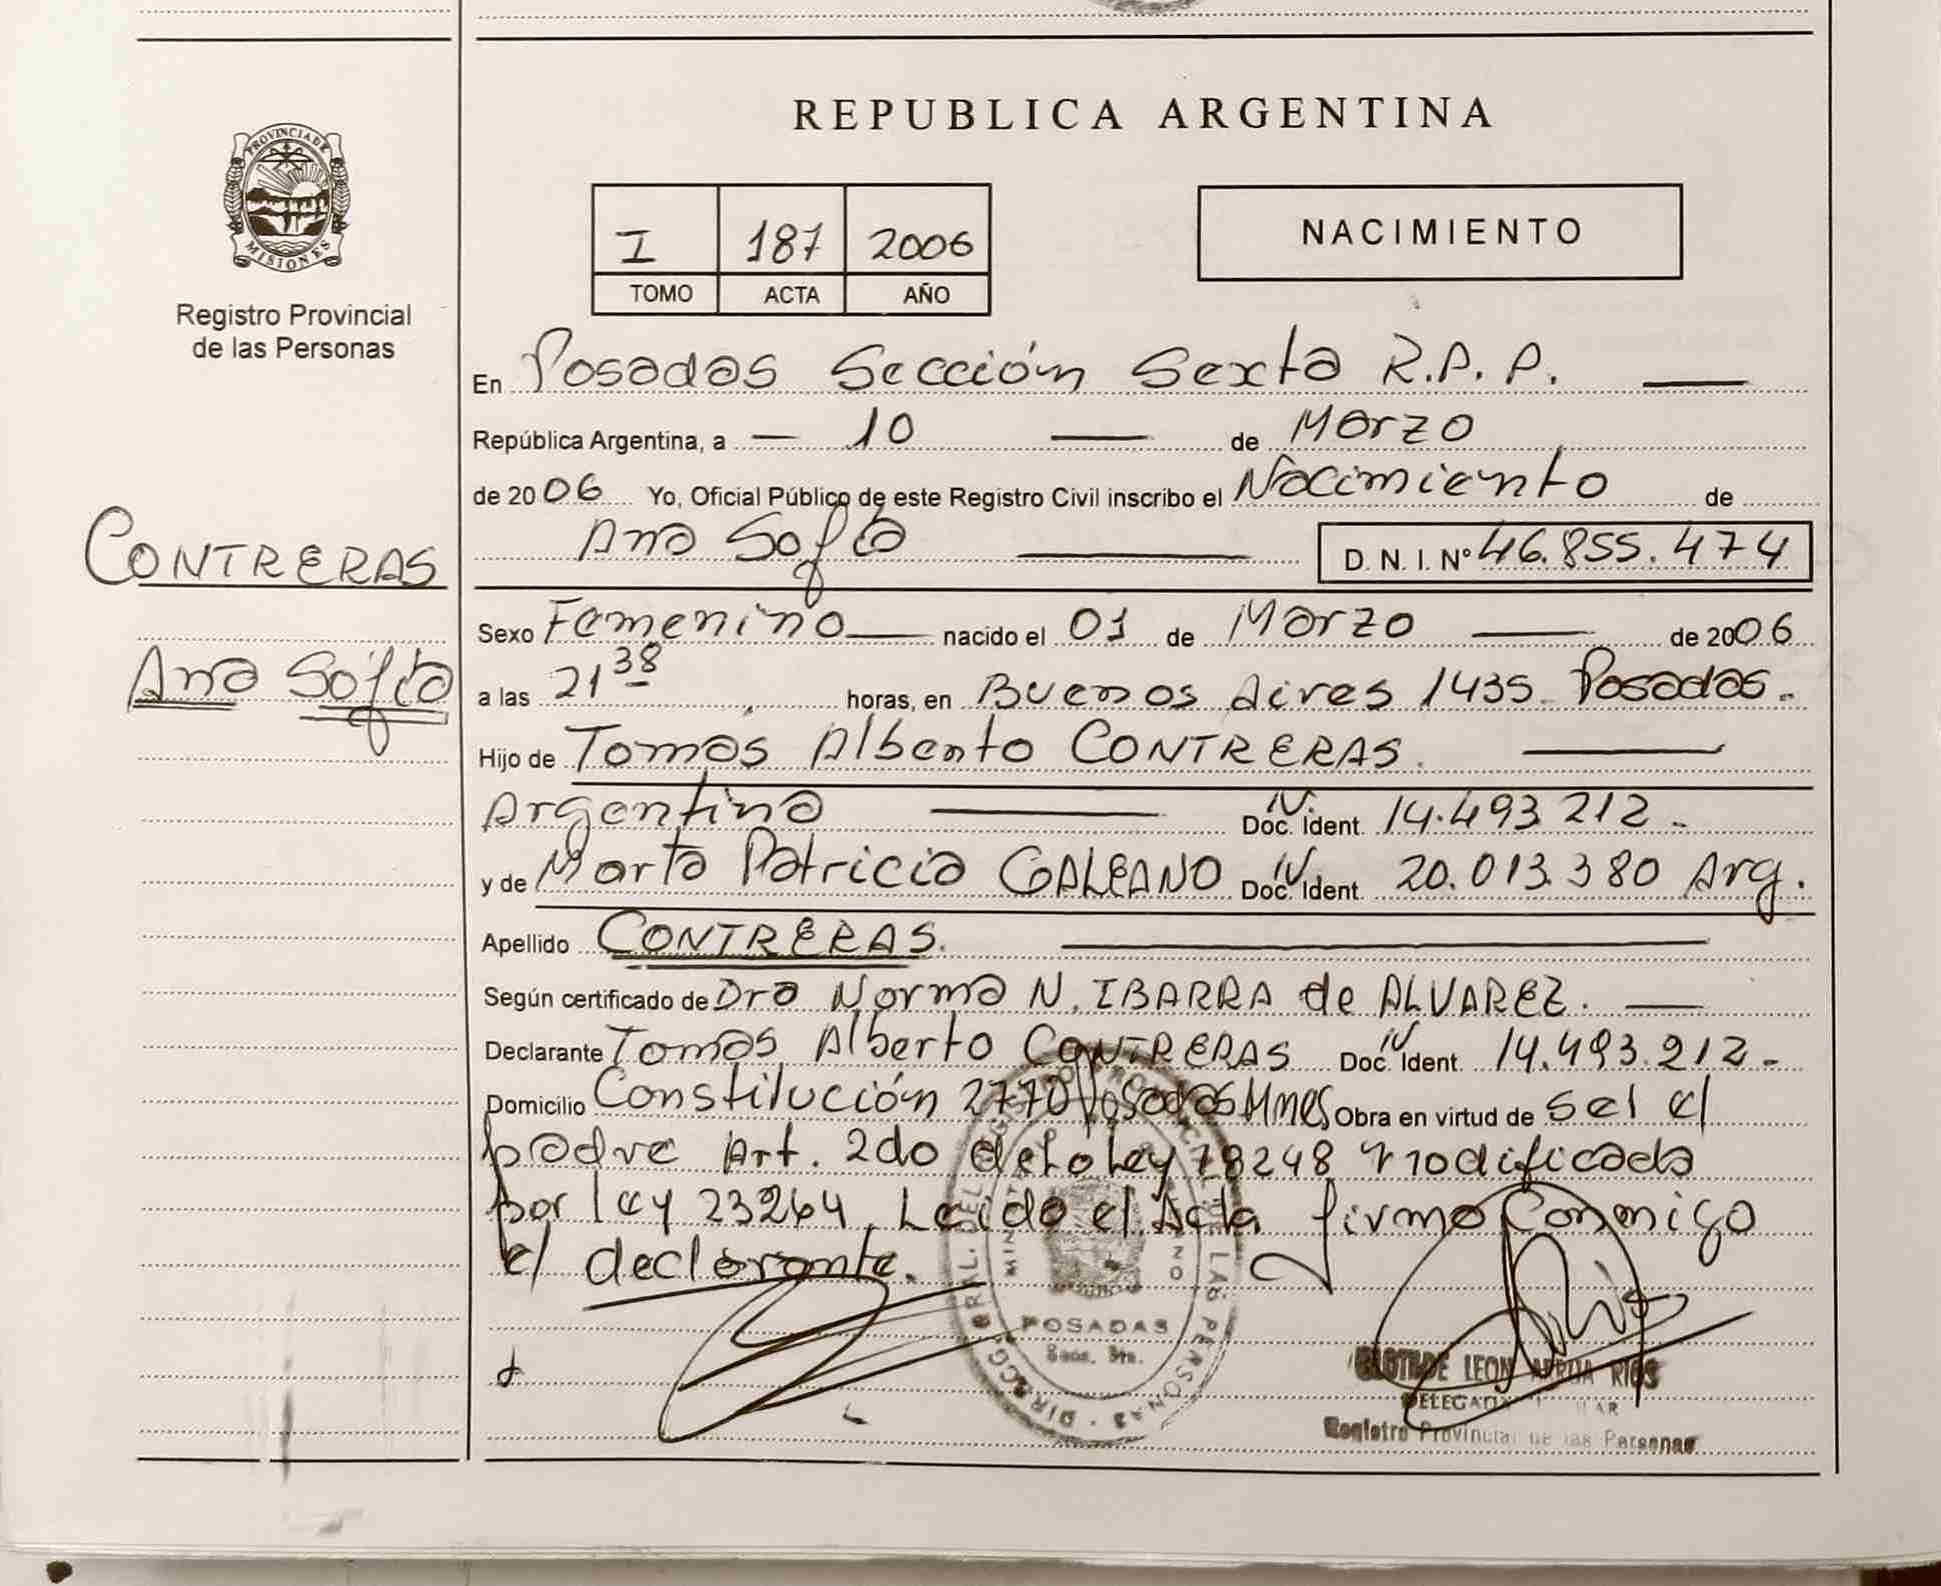 REPUBLICA ARGENTINA
PROVINCIA DE
MISIONES
Registro Provincial
de las Personas
I 187 2006
TOMO ACTA AÑO
NACIMIENTO
En Posadas Sección Sexta R.P.P.
República Argentina, a 10 de Marzo
de 2006 Yo, Oficial Público de este Registro Civil inscribo el Nacimiento de
Ana Sofía D. N. I. Nº 46.855.474
CONTRERAS
Ana Sofía
Sexo Femenino nacido el 01 de Marzo de 2006
a las 21 38 horas, en Buenos Aires 1435 Posadas.
Hijo de Tomás Alberto CONTRERAS.
Argentino Doc. Ident. 14.493.212.-
y de Marta Patricia GALEANO Doc. Ident. 20.013.380 Arg.
Apellido CONTRERAS.
Según certificado de Dra Norma N. IBARRA de ALVAREZ.
Declarante Tomás Alberto CONTRERAS Doc. Ident. 14.493.212.-
Domicilio Constitución 2770 Posadas Mnes Obra en virtud de ser el
padre Art. 2do de la Ley 18248 modificada
por ley 23264, Leído el Acta firma conmigo
el declarante.
POSADAS
LEON RIOS
Registro Provincial de las Personas